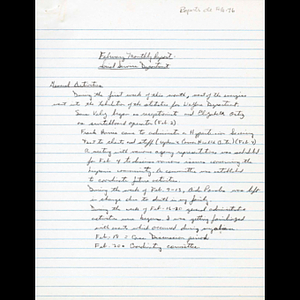 Reports
February Monthly Report
Social Services Department
General Activities
During the first week of this month, most of the energies
went into the tabulation of the statistics for Welfare Department.
began as receptionist and Elizabeth Ortiz
as switchboard operator (Feb. 2)
Frank came to administer a Hypertension Screening
Test to clients and staff (Feb. 4)
A meeting with various agency representatives was scheduled
for Feb. 4 to discuss various issues concerning the
hispanic community. A committee was established
to coordinate future activities.
During the week of Feb. 9-13, was left
in charge due to death in my family.
During the week of Feb. 16-20 general administrative
activities were begun. I was getting familiarized
with events which occurred during my absence.
Feb. 18 Case Discussion period
Feb. 20 Coordinating committee